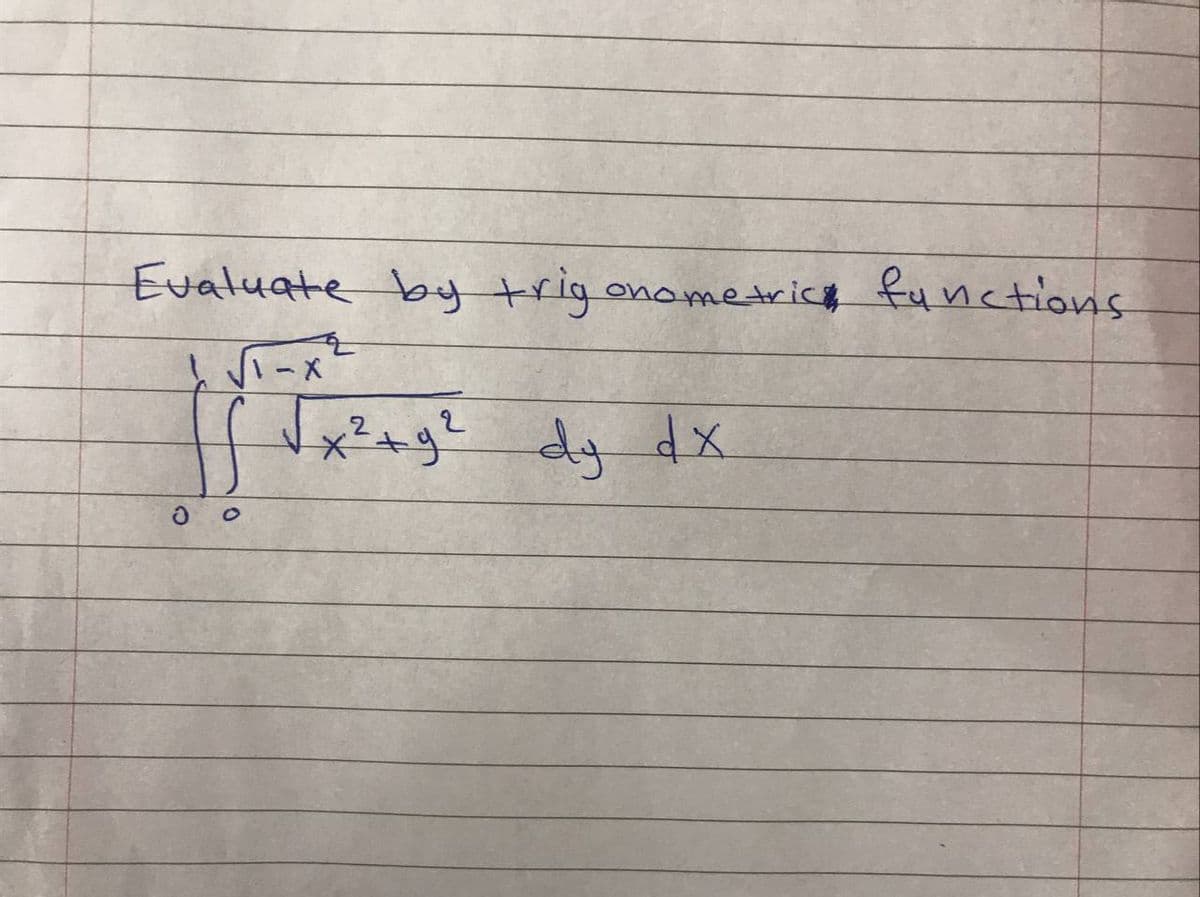 Evaluate by trigonometric functions
1 √1-x²
∫∫ √x²+y² dy dx
0 0